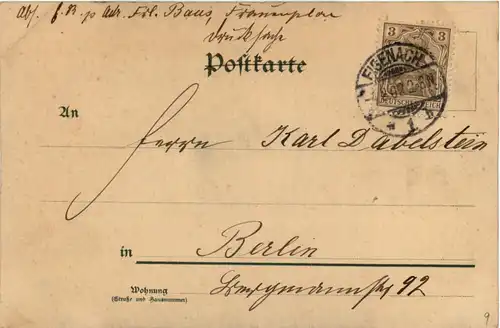 Abs. F. B. p Adr. Frl. Baus Frauenplan
Drucksache
Postkarte
3 3
DEUTSCHES REICH
EISENACH
* 1 h
An
Herrn Karl Dabelstein
in Berlin
Wohnung Bergmannstr 92
(Straße und Hausnummer)
9